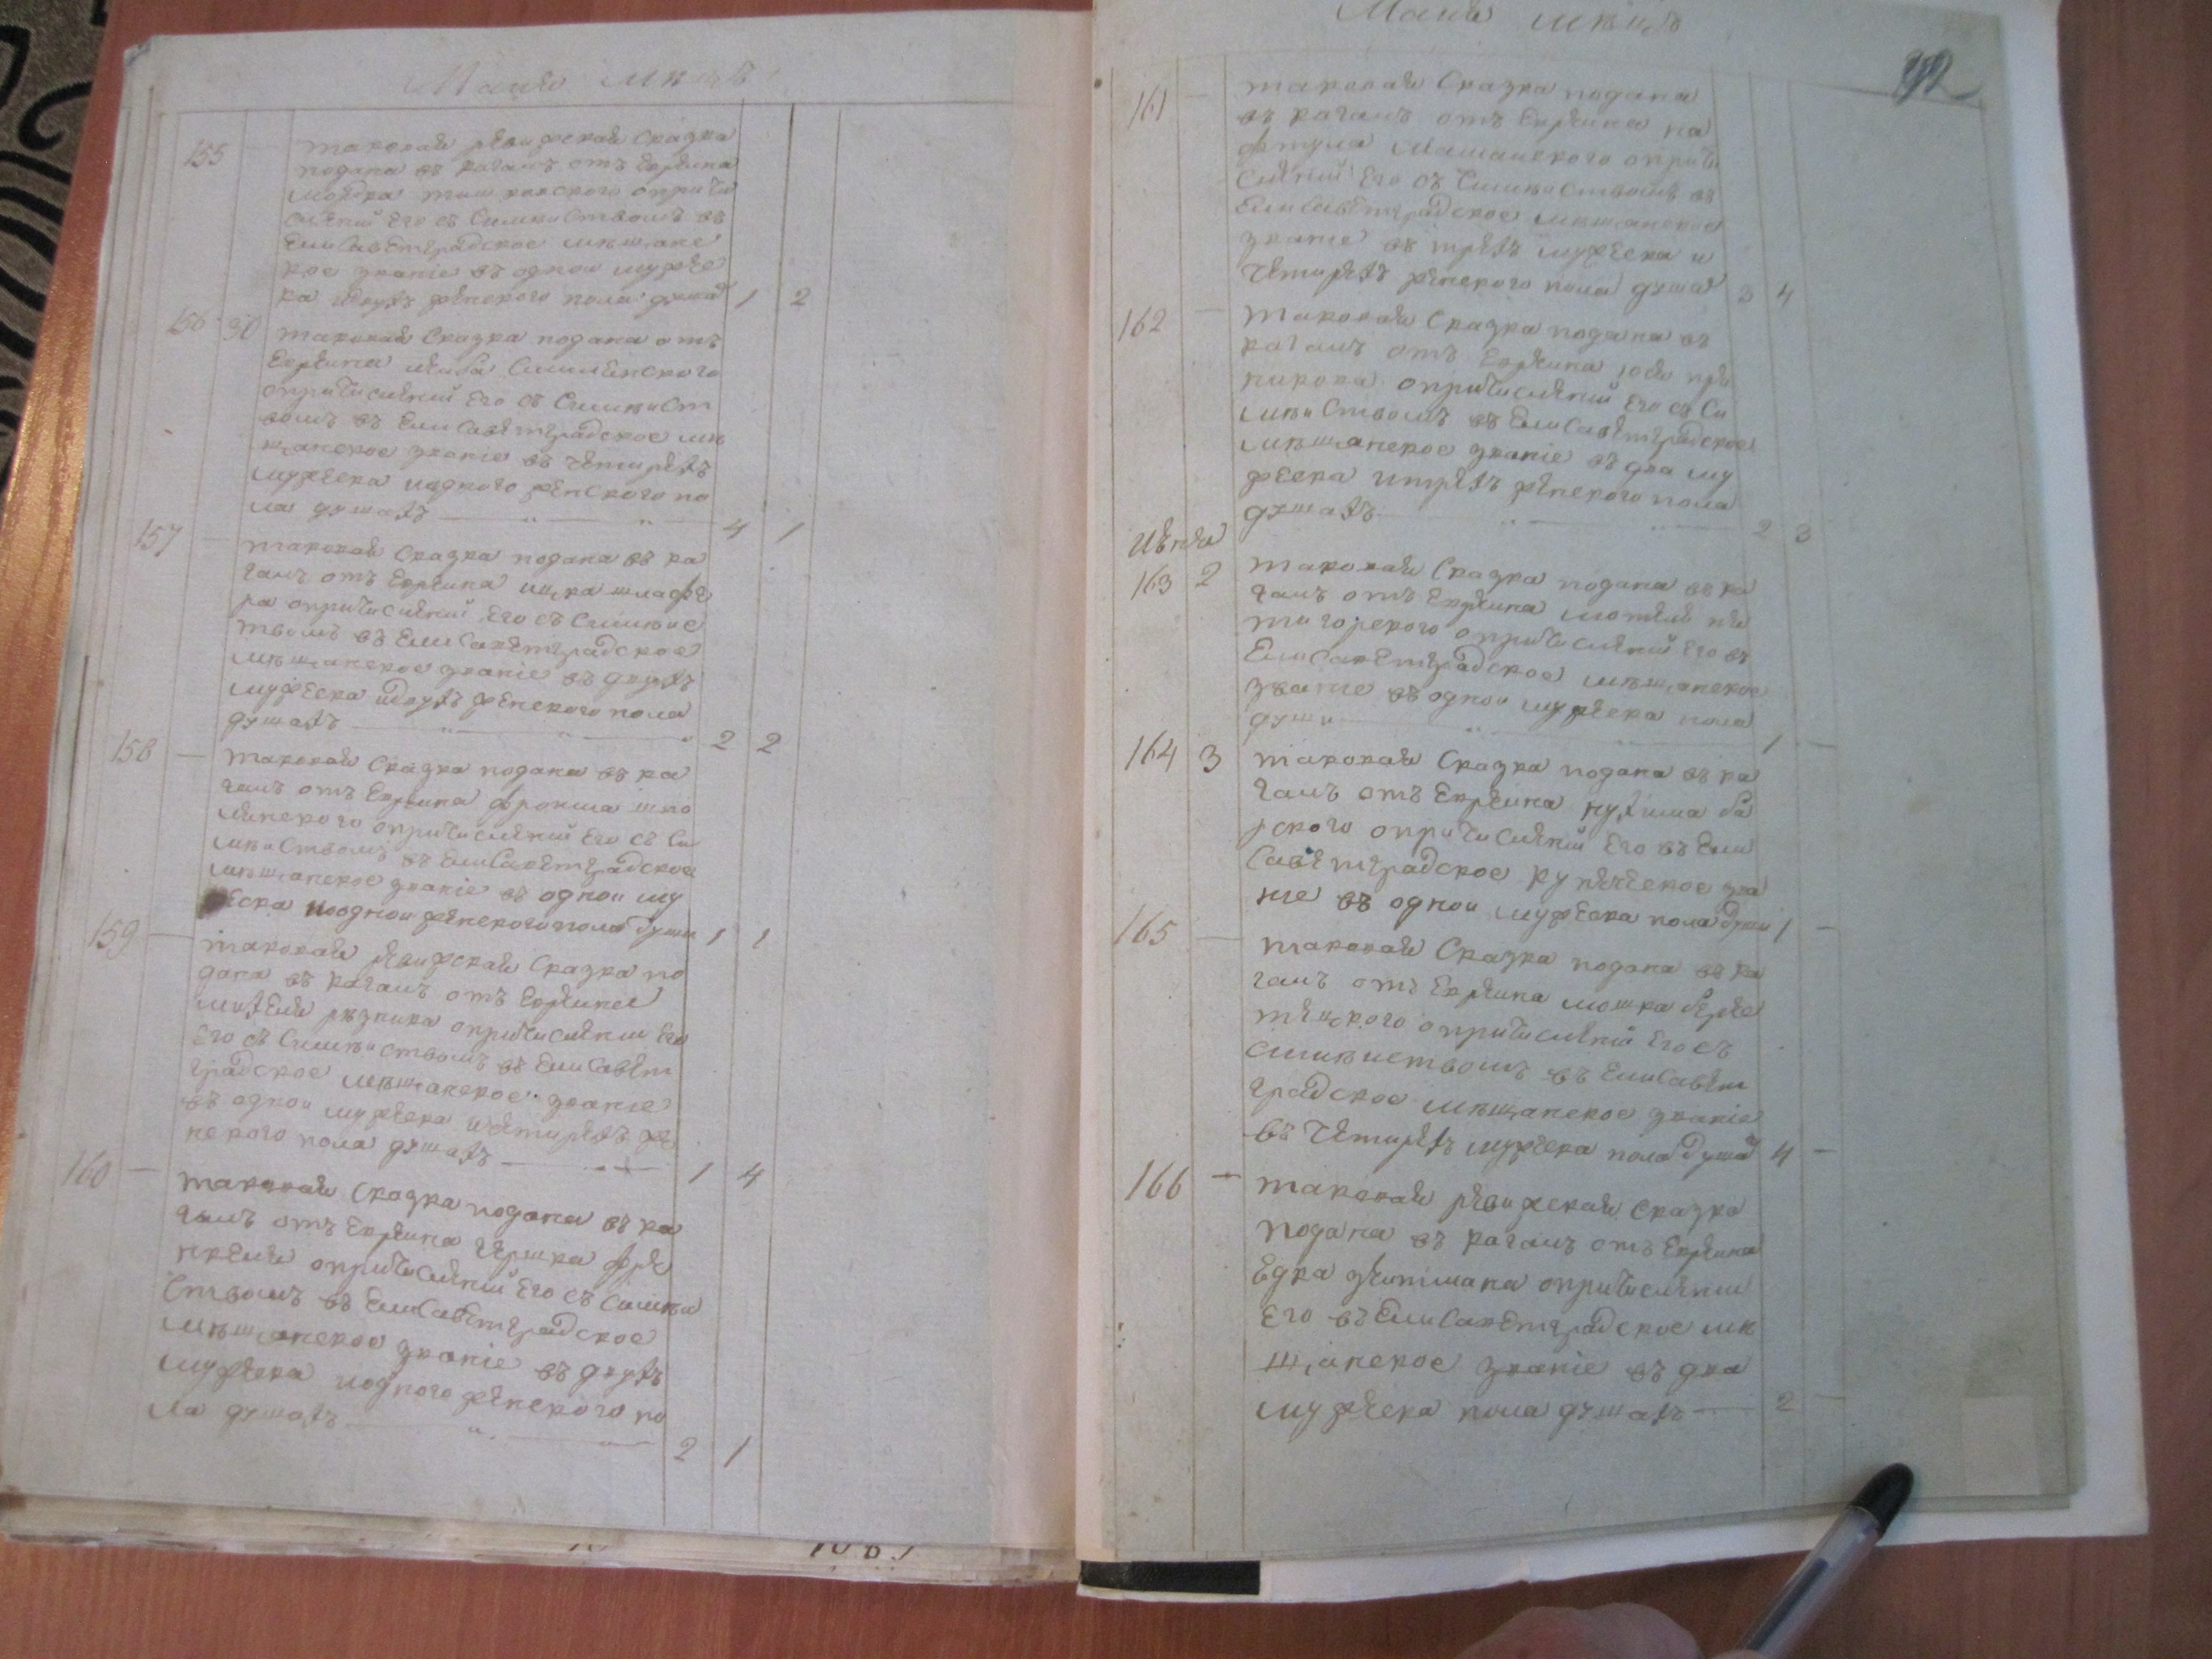 Маия мѣцъ
155
таковая рѣвижская сказка
подана въ кагалъ отъ Еврѣина
опричи
слѣнiи Его съ Симѣиствомъ въ
Елисавѣтградское мѣщанс
кое званiе въ одной мужес
ка идвухъ жѣнского пола душа 1 2
156 30
таковая сказка подана отъ
Еврѣина лѣиба Смилѣнского
опричислѣнiи Его съ Симѣист
вомъ въ Елисавѣтградское мѣ
щанское званiе въ чѣтирѣхъ
мужеска иодного жѣнского по
ла душахъ 4 1
157
таковая сказка подана въ ка
галъ отъ Еврѣина ицка
опричислѣнiи Его съ Симѣис
твомъ въ Елисавѣтградское
мѣщанское званiе въ двухъ
мужеска идвухъ жѣнского пола
душахъ 2 2
158 —
таковая сказка подана въ ка
галъ отъ Еврѣина
опричислѣнiи Его съ Си
мѣиствомъ въ Елисавѣтградское
мѣщанское званiе въ одной му
жеска иодной жѣнского пола души 1 1
159 —
таковая рѣвижская сказка по
дана въ кагалъ отъ Еврѣина
рѣзника опричислѣнiи Его
Его съ Симѣиствомъ въ Елисавѣт
градское мѣщанское званiе
въ одной мужеска ичѣтирѣхъ жѣ
нского пола душахъ 1 4
160 —
таковая сказка подана въ ка
галъ отъ Еврѣина гѣршка
опричислѣнiи Его съ Симѣи
ствомъ въ Елисавѣтградское
мѣщанское званiе въ двухъ
мужеска иодного жѣнского по
ла душахъ 2 1
Маия мѣцъ
192
161 —
таковая сказка подана
въ кагалъ отъ Еврѣина на
фтула опричи
слѣнiи Его съ Симѣиствомъ въ
Елисавѣтградское мѣщанское
званiе въ трѣхъ мужеска и
чѣтирѣхъ жѣнского пола душа 3 4
162 —
таковая сказка подана въ
кагалъ отъ Еврѣина
опричислѣнiи Его съ Си
мѣиствомъ въ Елисавѣтградское
мѣщанское званiе въ два му
жеска итрѣхъ жѣнского пола
душахъ 2 3
Июня
163 2
таковая сказка подана въ ка
галъ отъ Еврѣина мотѣя пя
тигорского опричислѣнiи Его въ
Елисавѣтградское мѣщанское
званiе въ одной мужеска пола
души 1 —
164 3
таковая сказка подана въ ка
галъ отъ Еврѣина нухима ба
рского опричислѣнiи Его въ Ели
савѣтградское купѣчѣское зва
ние въ одной мужеска пола души 1 —
165 —
таковая сказка подана въ ка
галъ отъ Еврѣина мошка
опричислѣнiи Его съ
симѣиствомъ въ Елисавѣт
градское мѣщанское званiе
въ чѣтирѣхъ мужеска пола душа 4 —
166 —
таковая рѣвижская сказка
подана въ кагалъ отъ Еврѣина
опричислѣнiи
Его въ Елисавѣтградское мѣ
щанское званiе въ два
мужеска пола душахъ — 2 —